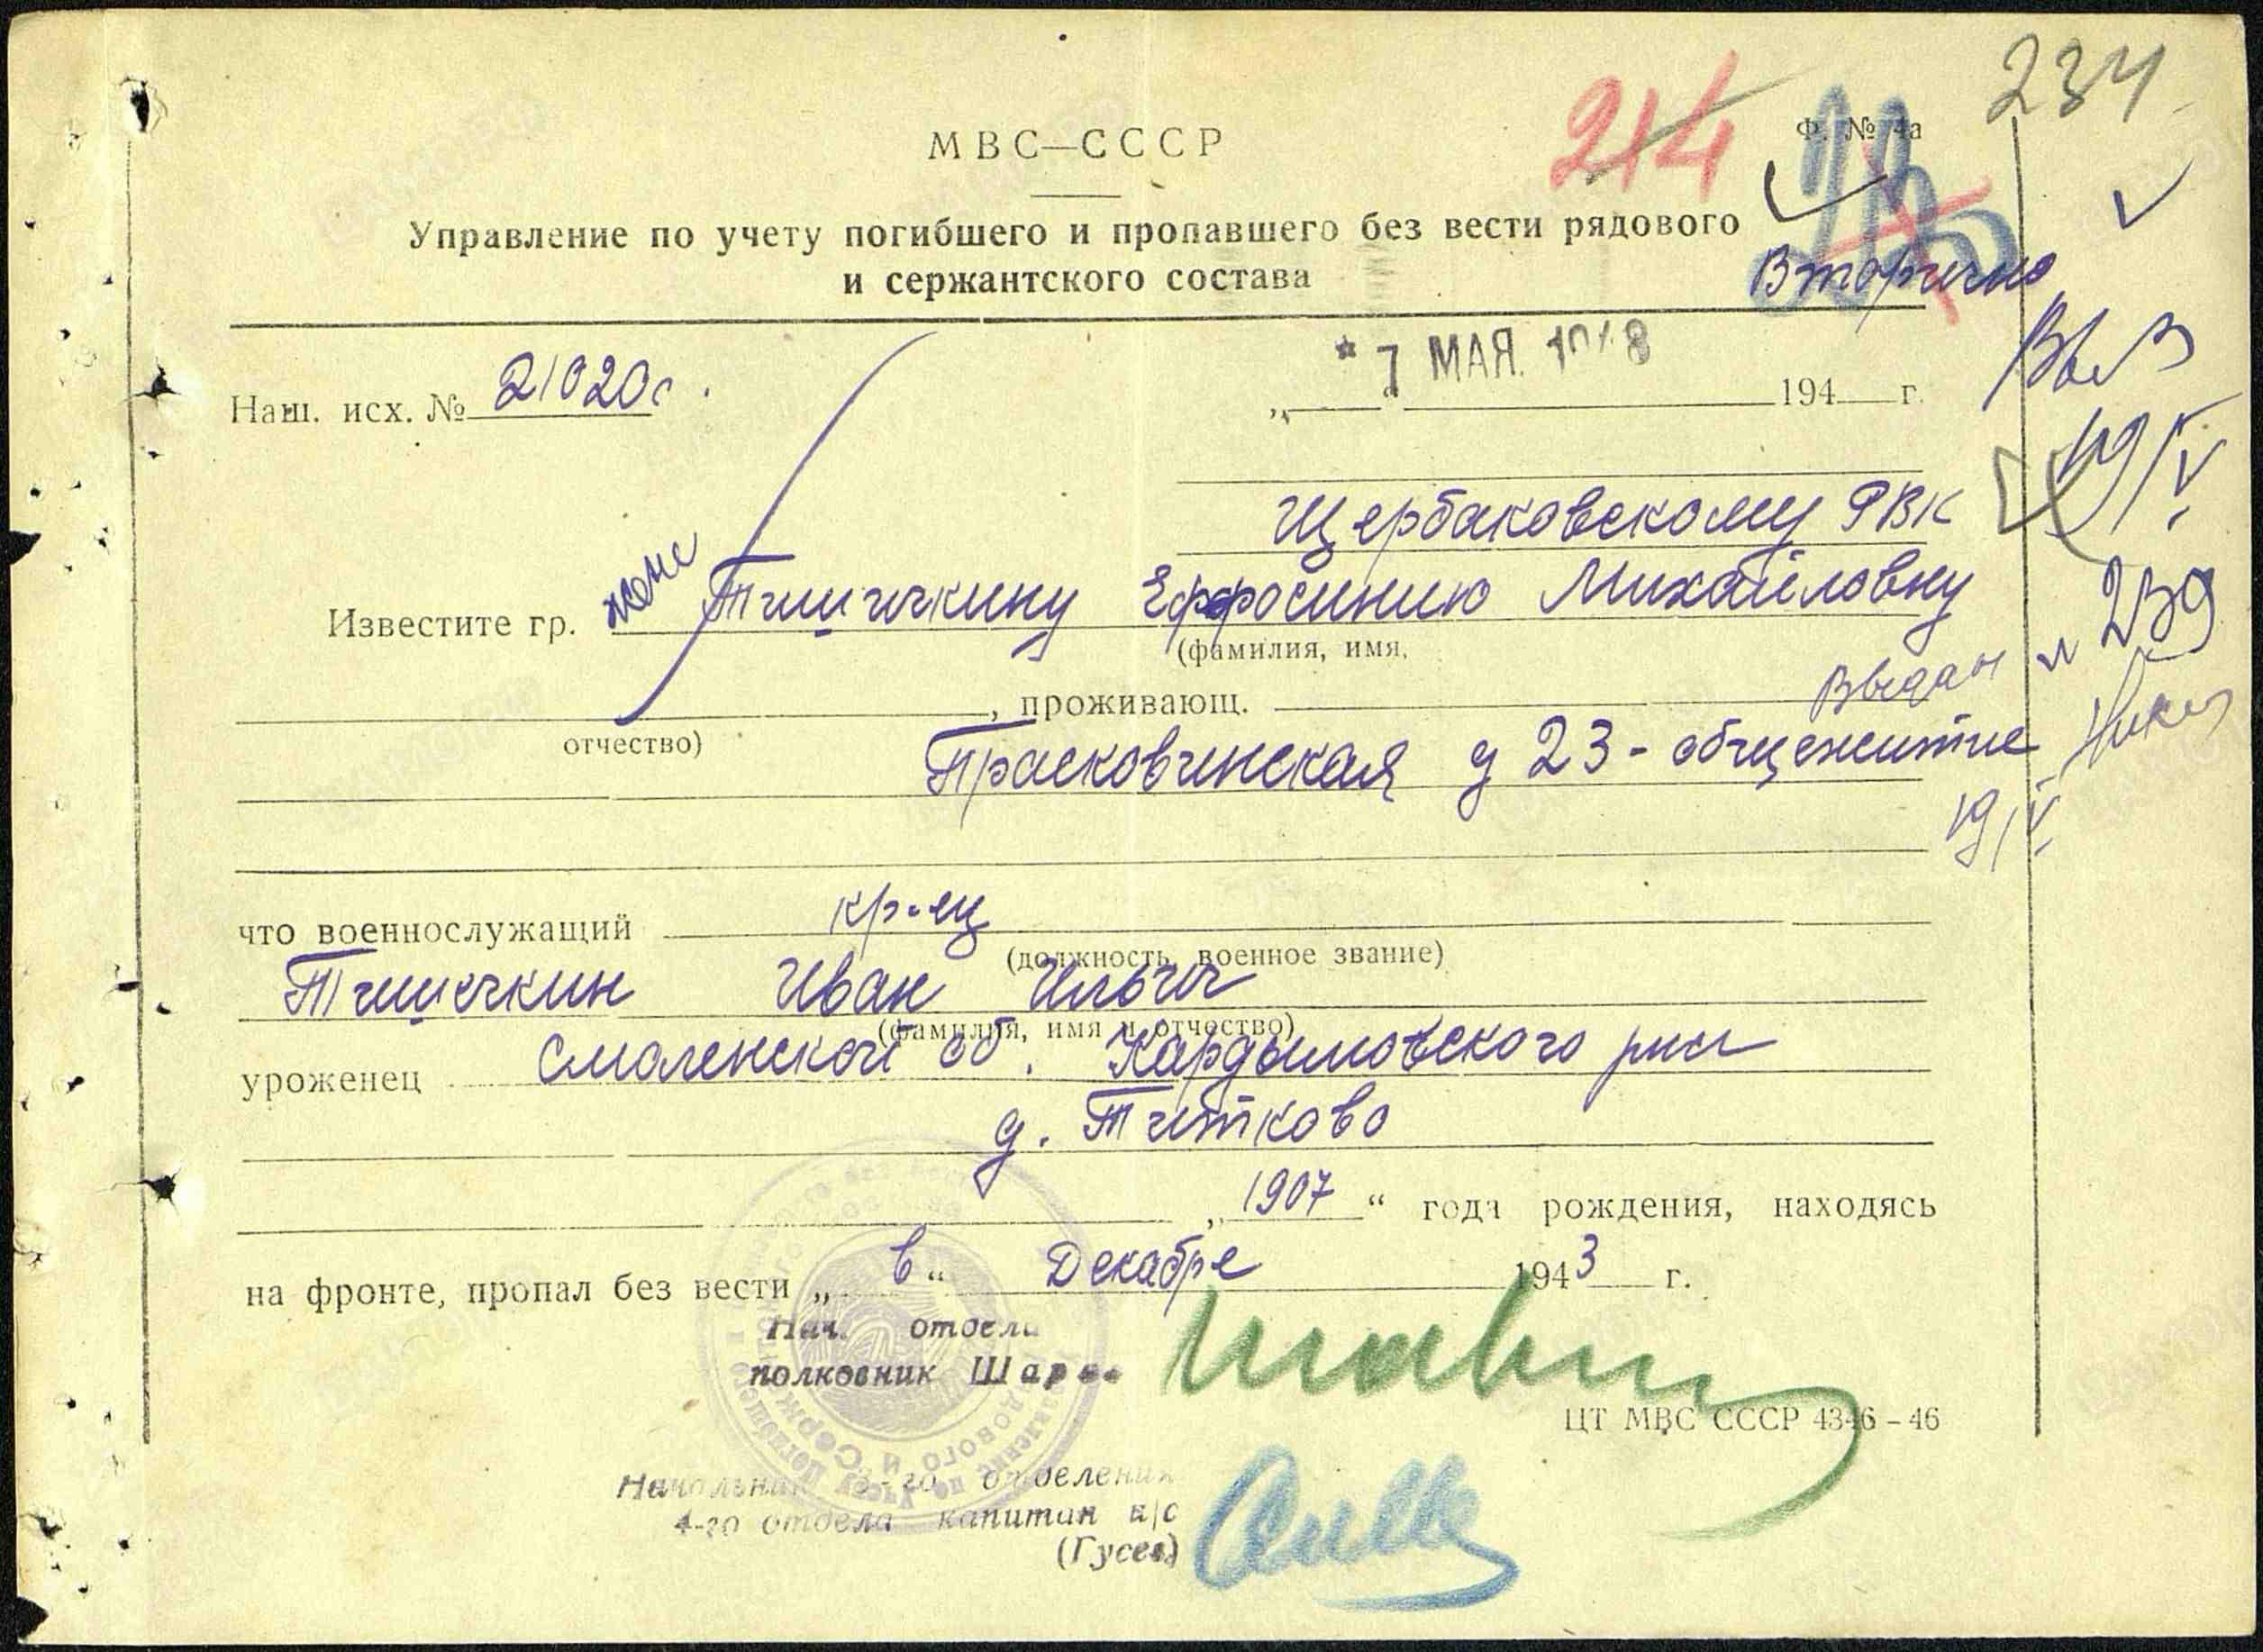 234
214
Ф. № 4а
МВС—СССР
Управление по учету погибшего и пропавшего без вести рядового
и сержантского состава
Вторично
* 7 МАЯ 1948
Наш. исх. № 21020с.
„ “ 194 г.
19/V
Щербаковскому РВК
239
Известите гр. жене Тишичкину Ефросинию Михайловну
(фамилия, имя,
, проживающ.
Выдан
отчество)
Прасковьинская д 23 - общежитие
19/V
что военнослужащий кр-ец
(должность, военное звание)
Тишичкин Иван Ильич
(фамилия, имя и отчество)
уроженец Смоленской об. Кардымовского
д. Титково
„ 1907 “ года рождения, находясь
на фронте, пропал без вести „ в “ Декабре 1943 г.
Нач. отдела
полковник
ЦТ МВС СССР 4346 – 46
Начальник 3-го отделения
4-го отдела капитан а/с
(Гусев)